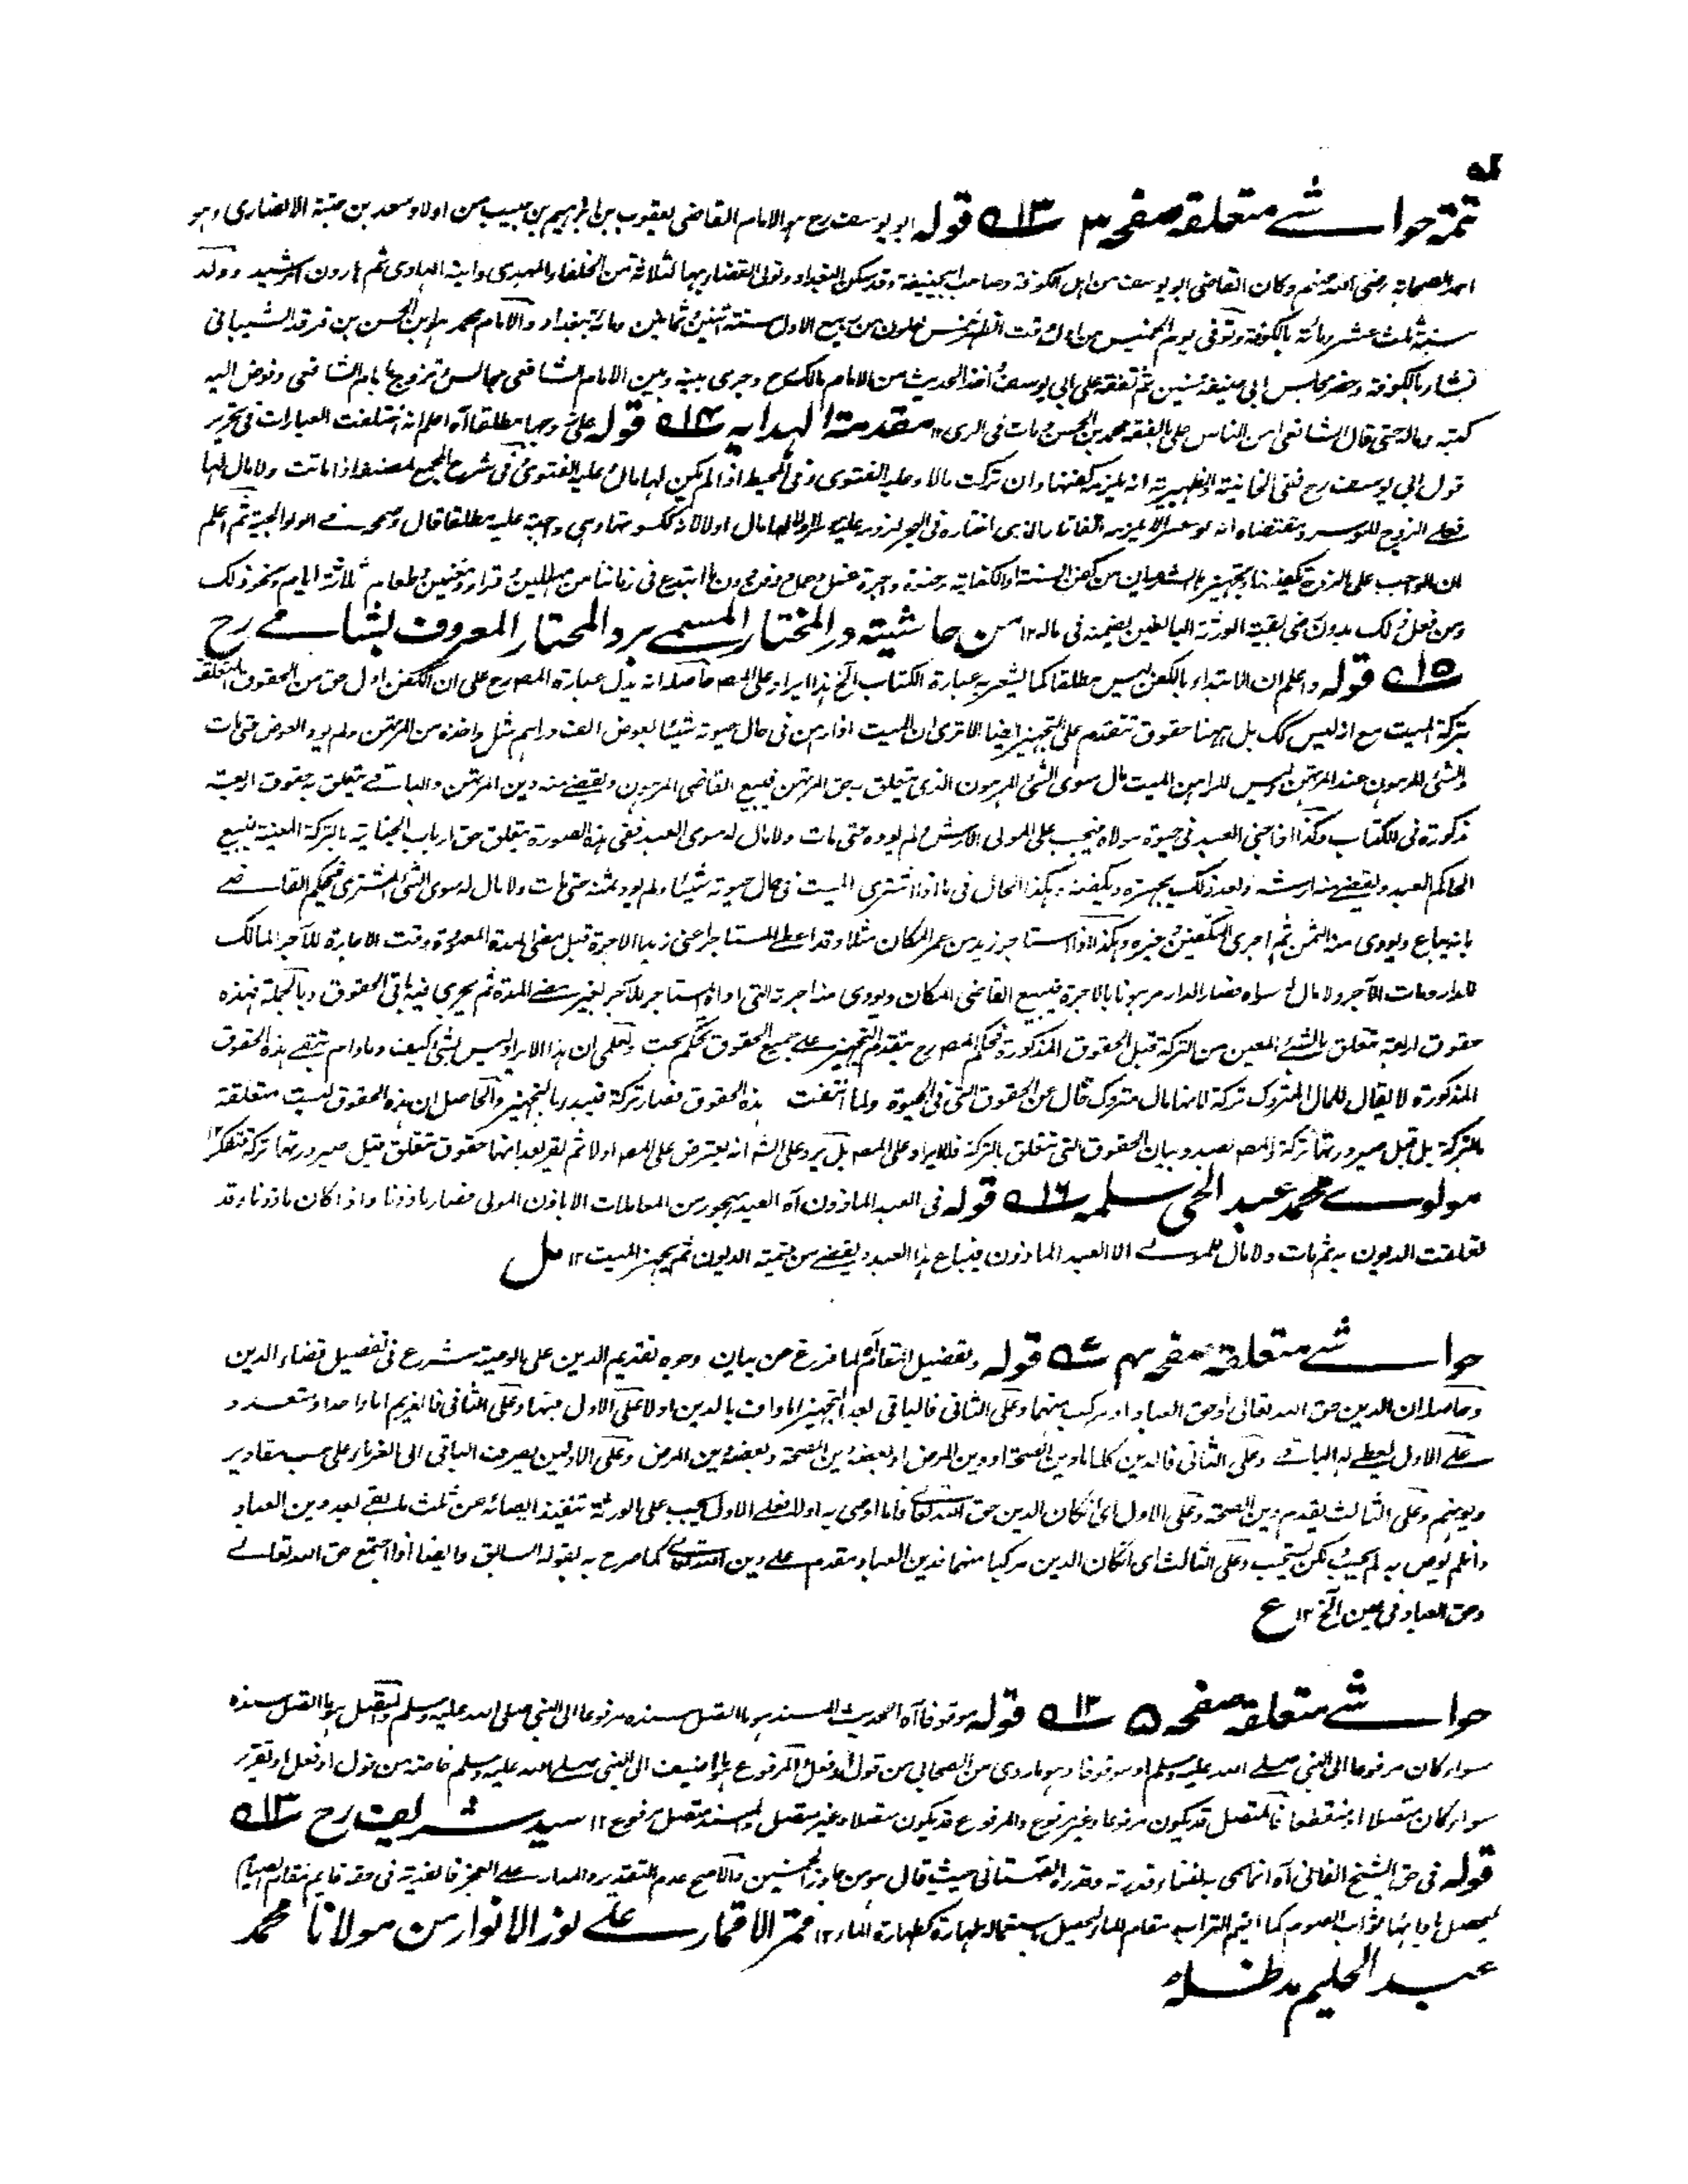 تتمة حواشے متعلقہ صفحہ ۳ ؁۱۳ قولہ ابو یوسف رح ہو الامام القاضی یعقوب بن ابراہیم بن حبیب من اولاد سعد بن حبتة الانصاری وہو
احد الصحابة رضی اللہ عنہم وکان القاضی ابو یوسف من اہل الکوفة وصاحب ابی حنیفة وقد سکن البغداد وتولی القضاء بہا لثلاثة من الخلفاء المہدی وابنہ الہادی ثم ہارون الرشید وولد
سنة ثلث عشر ومائة بالکوفة وتوفی یوم الخمیس من اول وقت الظہر لخمس خلون من ربیع الاول سنة اثنین وثمانین ومائة ببغداد والامام محمد ہو ابن الحسن بن فرقد الشیبانی
نشأ بالکوفة وحضر مجلس ابی حنیفة سنین ثم تفقہ علی ابی یوسف واخذ الحدیث من الامام مالک رح وجری بینہ وبین الامام الشافعی مجالس وتزوج بام الشافعی وفوض الیہ
کتبہ ومالہ حتی قال الشافعی امن الناس علی بالفقہ محمد بن الحسن ومات فی الری ۱۲ مقدمة الہدایہ ؁۱۴ قولہ علی زوجہا مطلقا آہ اعلم انہ اختلفت العبارات فی تحریر
قول ابی یوسف رح ففی الخانیة والظہیریة انہ یلزمہ کفنہا وان ترکت مالا وعلیہ الفتوی وفی المحیط اذا لم یکن لہا مال علیہ الفتوی وفی شرح المجمع لمصنفہ اذا ماتت ولا مال لہا
فعلی الزوج الموسر ومقتضاہ انہ لو معسرا لا یلزمہ اتفاقا والذی اختارہ فی البحر لزومہ علیہ موسرا او لا لہا مال او لا لانہ ککسوتہا وہی واجبة علیہ مطلقا قال وصححہ فی الولوالجیة ثم اعلم
ان الواجب علی الزوج تکفینہا وتجہیزہا الشرعیان من کفن السنة او الکفایة وحنوط واجرة غسل وحمل ودفن دون ما ابتدع فی زماننا من مہللین وقراء ومغنیین وطعام ثلاثة ایام ونحو ذلک
ومن فعل ذلک بدون رضی بقیة الورثة البالغین یضمنہ فی مالہ ۱۲ من حاشیتہ در المختار المسمے برد المحتار المعروف بشامے رح
؁۱۵ قولہ واعلم ان الابتداء بالکفن لیس مطلقا کما یشعر بہ عبارة الکتاب الخ ہذا ایراد علی المصـ حاصلہ انہ یدل عبارة المصـ رح علی ان الکفن اول حق من الحقوق المتعلقة
بترکة المیت مع انہ لیس کک بل ہہنا حقوق تتقدم علی التجہیز ایضا الا تری ان المیت اذا رہن فی حال حیوتہ شیئا بعوض الف دراہم مثل واخذہ من المرتہن ولم یود العوض حتی مات
والشئ المرہون عند المرتہن ولیس للراہن المیت مال سوی الشئ المرہون الذی یتعلق بہ حق المرتہن فیبیع القاضی المرہون ویقضے منہ دین المرتہن والباقے یتعلق بہ حقوق اربعة
مذکورة فی الکتاب وکذا اذا جنی العبد فی حیوة مولاہ فیجب علی المولی الارش ولم یودہ حتی مات ولا مال لہ سوی العبد ففی ہذہ الصورة یتعلق حق ارباب الجنایة بالترکة المعینة فیبیع
الحاکم العبد ویقضے منہ ارشہ وبعد ذلک یجہزہ ویکفنہ وہکذا الحال فی ما اذا اشتری المیت فی حال حیوتہ شیئا ولم یود ثمنہ حتی مات ولا مال لہ سوی الشئ المشتری فیحکم القاضے
بانہ یباع ویودی منہ الثمن ثم اجری التکفین وغیرہ وہکذا اذا استاجر زید من عمر المکان مثلا وقد اعطی المستاجر اعنی زیدا الاجرة قبل مضی المدة المعہودة وقت الاجارة للآجر المالک
للدار ومات الآجر ولا مال لہ سواہ فصار الدار مرہونا بالاجرة فیبیع القاضی المکان ویودی منہ اجرتہ التی اداہا المستاجر للآجر بغیر مضے المدة ثم یجری فیہ باقی الحقوق وبالجملة فہذہ
حقوق اربعة متعلق بالشئ المعین من الترکة قبل الحقوق المذکورة فحکم المصـ رح بتقدم التجہیز علے جمیع الحقوق تحکم بحت ولعلمی ان ہذا الایراد لیس بشئ کیف وما دام تبقے ہذہ الحقوق
المذکورة لا یقال للمال المتروک ترکة لانہا مال متروک خال عن الحقوق التی فی الحیوة ولما انتفت ہذہ الحقوق فصار ترکة فیبدء بالتجہیز والحاصل ان ہذہ الحقوق لیست متعلقة
بالترکة بل قبل صیرورتہا ترکة والمصـ بصدد بیان الحقوق التی تتعلق بالترکة فلا ایراد علی المصـ بل یرد علی الشـ انہ یعترض علی المصـ اولا ثم یقر بعد انہا حقوق تتعلق قبل صیرورتہا ترکة فتفکر ۱۲
مولوے محمد عبد الحی سلمہ ؁۱۶ قولہ فی العبد الماذون آہ العبد محجور من المعاملات الا باذن المولی فصار ماذونا واذا کان ماذونا وقد
تعلقت الدیون بہ ثم مات ولا مال للمولے الا العبد الماذون فیباع ہذا العبد ویقضے من قیمتہ الدیون ثم یجہز المیت ۱۲
حواشے متعلقہ صفحہ ۴ قولہ وتفضیل المقام آہ لما فرغ من بیان وجوہ تقدیم الدین علی الوصیة شرع فی تفصیل قضاء الدین
وحاصلہ ان الدین حق اللہ تعالی او حق العباد او مرکب منہما وعلی الثانی فالباقی بعد التجہیز اما واف بالدین او لا علی الاول فبہا وعلی الثانی فالغریم اما واحد او متعدد
علے الاول یعطے لہ الباقے وعلی الثانی فالدین کلہ اما دین الصحة او دین المرض او بعضہ دین الصحة وبعضہ دین المرض وعلی الاولین یصرف الباقی الی الغرماء علی حسب مقادیر
دیونہم وعلی الثالث یقدم دین الصحة وعلی الاول ای ان کان الدین حق اللہ تعالے فاما اوصی بہ او لا فعلی الاول یجب علی الورثة تنفیذ ایصائہ عن ثلث ما بقے بعد دین العباد
وان لم یوص بہ لم یجب لکن یستحب وعلی الثالث ای ان کان الدین مرکبا منہما فدین العباد مقدم علے دین اللہ تعالے کما صرح بہ بقولہ السابق وایضا اذا اجتمع حق اللہ تعالے
وحق العباد فی عین الخ ۱۲ ع
حواشے متعلقہ صفحہ ۵ ؁۱۲ قولہ موقوفا آہ الحدیث المسند ہو ما اتصل سندہ مرفوعا الی النبی صلی اللہ علیہ وسلم والمتصل ہو ما اتصل سندہ
سواء کان مرفوعا الی النبی صلے اللہ علیہ وسلم او موقوفا وہو ما روی من الصحابی من قول او فعل والمرفوع ہو ما اضیف الی النبی صلے اللہ علیہ وسلم خاصة من قول او فعل او تقریر
سواء کان متصلا او منقطعا فالمتصل قد یکون مرفوعا وغیر مرفوع والمرفوع قد یکون متصلا وغیر متصل والمسند متصل مرفوع ۱۲ سید شریف رح ؁۱۳
قولہ فی حق الشیخ الفانی آہ انما سمی بہ لفناء قوتہ وقدرہ القہستانی حیث قال ہو من جاوز الخمسین والاصح عدم التقدیر والمدار علے العجز فالفدیة فی حقہ قایم مقام الصیام
لیحصل بادائہا ثواب الصوم کما اقیم التراب مقام الماء لیحصل باستعمالہ طہارة کطہارة الماء ۱۲ قمر الاقمار علے نور الانوار من مولانا محمد
عبد الحلیم مد ظلہ